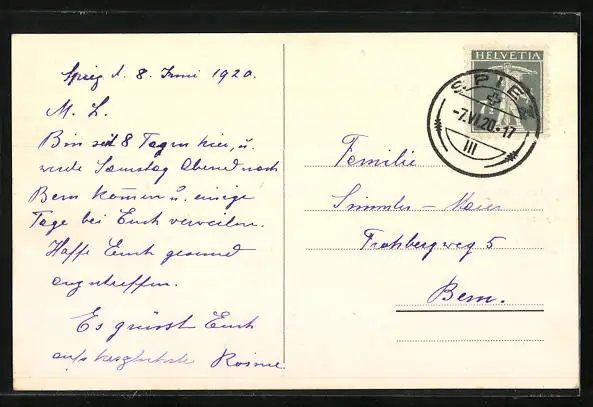 Spiez d. 8. Juni 1920.
M. L.
Bin seit 8 Tagen hier, u.
werde Samstag Abend nach
Bern kommen u. einige
Tage bei Euch verweilen.
Hoffe Euch gesund
anzutreffen.
Es grüsst Euch
aufs herzlichste Rosine
HELVETIA
SPIEZ
-7.VI.20-17
III
Familie
Simmler-Maier
Frohbergweg 5
Bern.